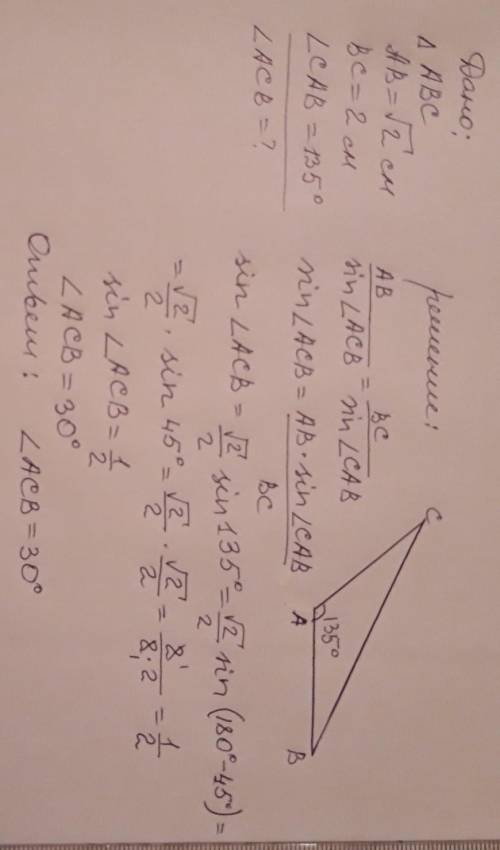 Дано:
Δ ABC
AB = √2 см
BC = 2 см
∠CAB = 135°
∠ACB = ?
решение:
AB/sin∠ACB = BC/sin∠CAB
sin∠ACB = AB·sin∠CAB/BC
sin∠ACB = √2/2 sin 135° = √2/2 sin(180°-45°) =
= √2/2 · sin 45° = √2/2 · √2/2 = 2/2·2 = 1/2
sin∠ACB = 1/2
∠ACB = 30°
Ответ: ∠ACB = 30°
C
135°
A
B